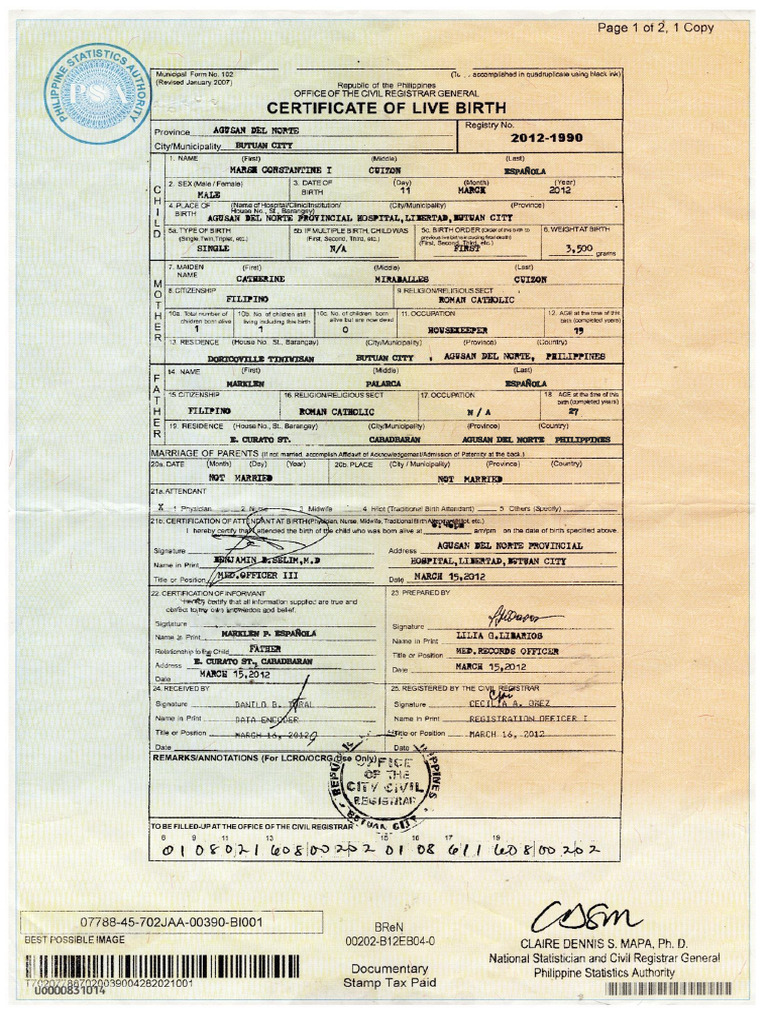 Page 1 of 2, 1 Copy
PHILIPPINE STATISTICS AUTHORITY
PSA
Municipal Form No. 102
(Revised January 2007)
accomplished in quadruplicate using black ink)
Republic of the Philippines
OFFICE OF THE CIVIL REGISTRAR GENERAL
CERTIFICATE OF LIVE BIRTH
Province AGUSAN DEL NORTE
City/Municipality BUTUAN CITY
Registry No.
2012-1990
CHILD
1. NAME (First) (Middle) (Last)
MARSH CONSTANTINE I CUIZON ESPAÑOLA
2. SEX (Male / Female) 3. DATE OF BIRTH (Day) (Month) (Year)
MALE 11 MARCH 2012
4. PLACE OF BIRTH (Name of Hospital/Clinic/Institution/ House No., St., Barangay) (City/Municipality) (Province)
AGUSAN DEL NORTE PROVINCIAL HOSPITAL, LIBERTAD, BUTUAN CITY
5a. TYPE OF BIRTH (Single, Twin, Triplet, etc.) 5b IF MULTIPLE BIRTH, CHILD WAS (First, Second, Third, etc.) 5c. BIRTH ORDER (Order of this birth to previous live births including fetal death) (First, Second, Third, etc.) 6. WEIGHT AT BIRTH
SINGLE N/A FIRST 3,500 grams
MOTHER
7. MAIDEN NAME (First) (Middle) (Last)
CATHERINE MIRABALLES CUIZON
8. CITIZENSHIP 9. RELIGION/RELIGIOUS SECT
FILIPINO ROMAN CATHOLIC
10a. Total number of children born alive 10b. No. of children still living including this birth 10c. No. of children born alive but are now dead 11. OCCUPATION 12. AGE at the time of this birth (completed years)
1 1 0 HOUSEKEEPER 19
13. RESIDENCE (House No., St., Barangay) (City/Municipality) (Province) (Country)
DORICOVILLE TINIWISAN BUTUAN CITY , AGUSAN DEL NORTE, PHILIPPINES
FATHER
14. NAME (First) (Middle) (Last)
MARKLEN PALARCA ESPAÑOLA
15. CITIZENSHIP 16. RELIGION/RELIGIOUS SECT 17. OCCUPATION 18. AGE at the time of this birth (completed years)
FILIPINO ROMAN CATHOLIC N / A 27
19. RESIDENCE (House No., St., Barangay) (City/Municipality) (Province) (Country)
E. CURATO ST. CABADBARAN AGUSAN DEL NORTE PHILIPPINES
MARRIAGE OF PARENTS (If not married, accomplish Affidavit of Acknowledgement/Admission of Paternity at the back.)
20a. DATE (Month) (Day) (Year) 20b. PLACE (City / Municipality) (Province) (Country)
NOT MARRIED NOT MARRIED
21a. ATTENDANT
X 1 Physician 2 Nurse 3 Midwife 4 Hilot (Traditional Birth Attendant) 5 Others (Specify)
21b. CERTIFICATION OF ATTENDANT AT BIRTH (Physician, Nurse, Midwife, Traditional Birth Attendant/Hilot, etc.)
I hereby certify that I attended the birth of the child who was born alive at am/pm on the date of birth specified above.
Signature
Name in Print BENJAMIN B. SELIM, M.D
Title or Position MED. OFFICER III
Address AGUSAN DEL NORTE PROVINCIAL
HOSPITAL, LIBERTAD, BUTUAN CITY
Date MARCH 15, 2012
22. CERTIFICATION OF INFORMANT
I hereby certify that all information supplied are true and
correct to my own knowledge and belief.
Signature
Name in Print MARKLEN P. ESPAÑOLA
Relationship to the Child FATHER
Address E. CURATO ST., CABADBARAN
Date MARCH 15, 2012
23. PREPARED BY
Signature
Name in Print LILIA G. LIBARIOS
Title or Position MED. RECORDS OFFICER
Date MARCH 15, 2012
24. RECEIVED BY
Signature DANILO B. TORAL
Name in Print DATA ENCODER
Title or Position MARCH 16, 2012
Date
25. REGISTERED BY THE CIVIL REGISTRAR
Signature CECILIA A. OREZ
Name in Print REGISTRATION OFFICER I
Title or Position MARCH 16, 2012
Date
REMARKS/ANNOTATIONS (For LCRO/OCRG Use Only)
OFFICE
OF THE
CITY CIVIL
REGISTRAR
BUTUAN CITY
TO BE FILLED-UP AT THE OFFICE OF THE CIVIL REGISTRAR
8 9 11 13 15 16 17 19
0108021 60800202 01 08 611 60800202
07788-45-702JAA-00390-BI001
BEST POSSIBLE IMAGE
T702077887020039004282021001
U0000831014
BReN
00202-B12EB04-0
Documentary
Stamp Tax Paid
CLAIRE DENNIS S. MAPA, Ph. D.
National Statistician and Civil Registrar General
Philippine Statistics Authority